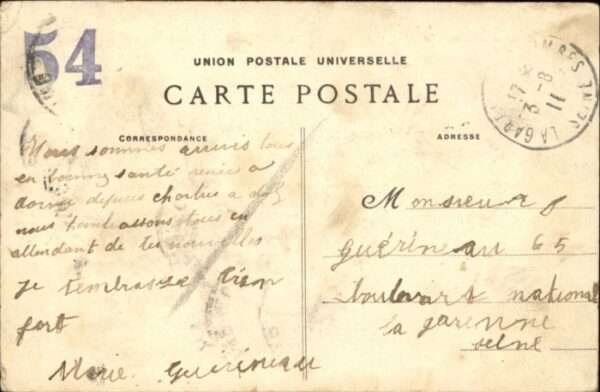 54
UNION POSTALE UNIVERSELLE
CARTE POSTALE
CORRESPONDANCE
ADRESSE
17
3 - 8
11
LA GARENNE
SEINE
Nous sommes arrivés tous
en bonne santé
dormi depuis
nous tembrassons tous en
attendant de tes nouvelles
je tembrasse bien
fort
Marie Guérineau
Monsieur
Guérineau 65
boulevart national
la garenne
seine